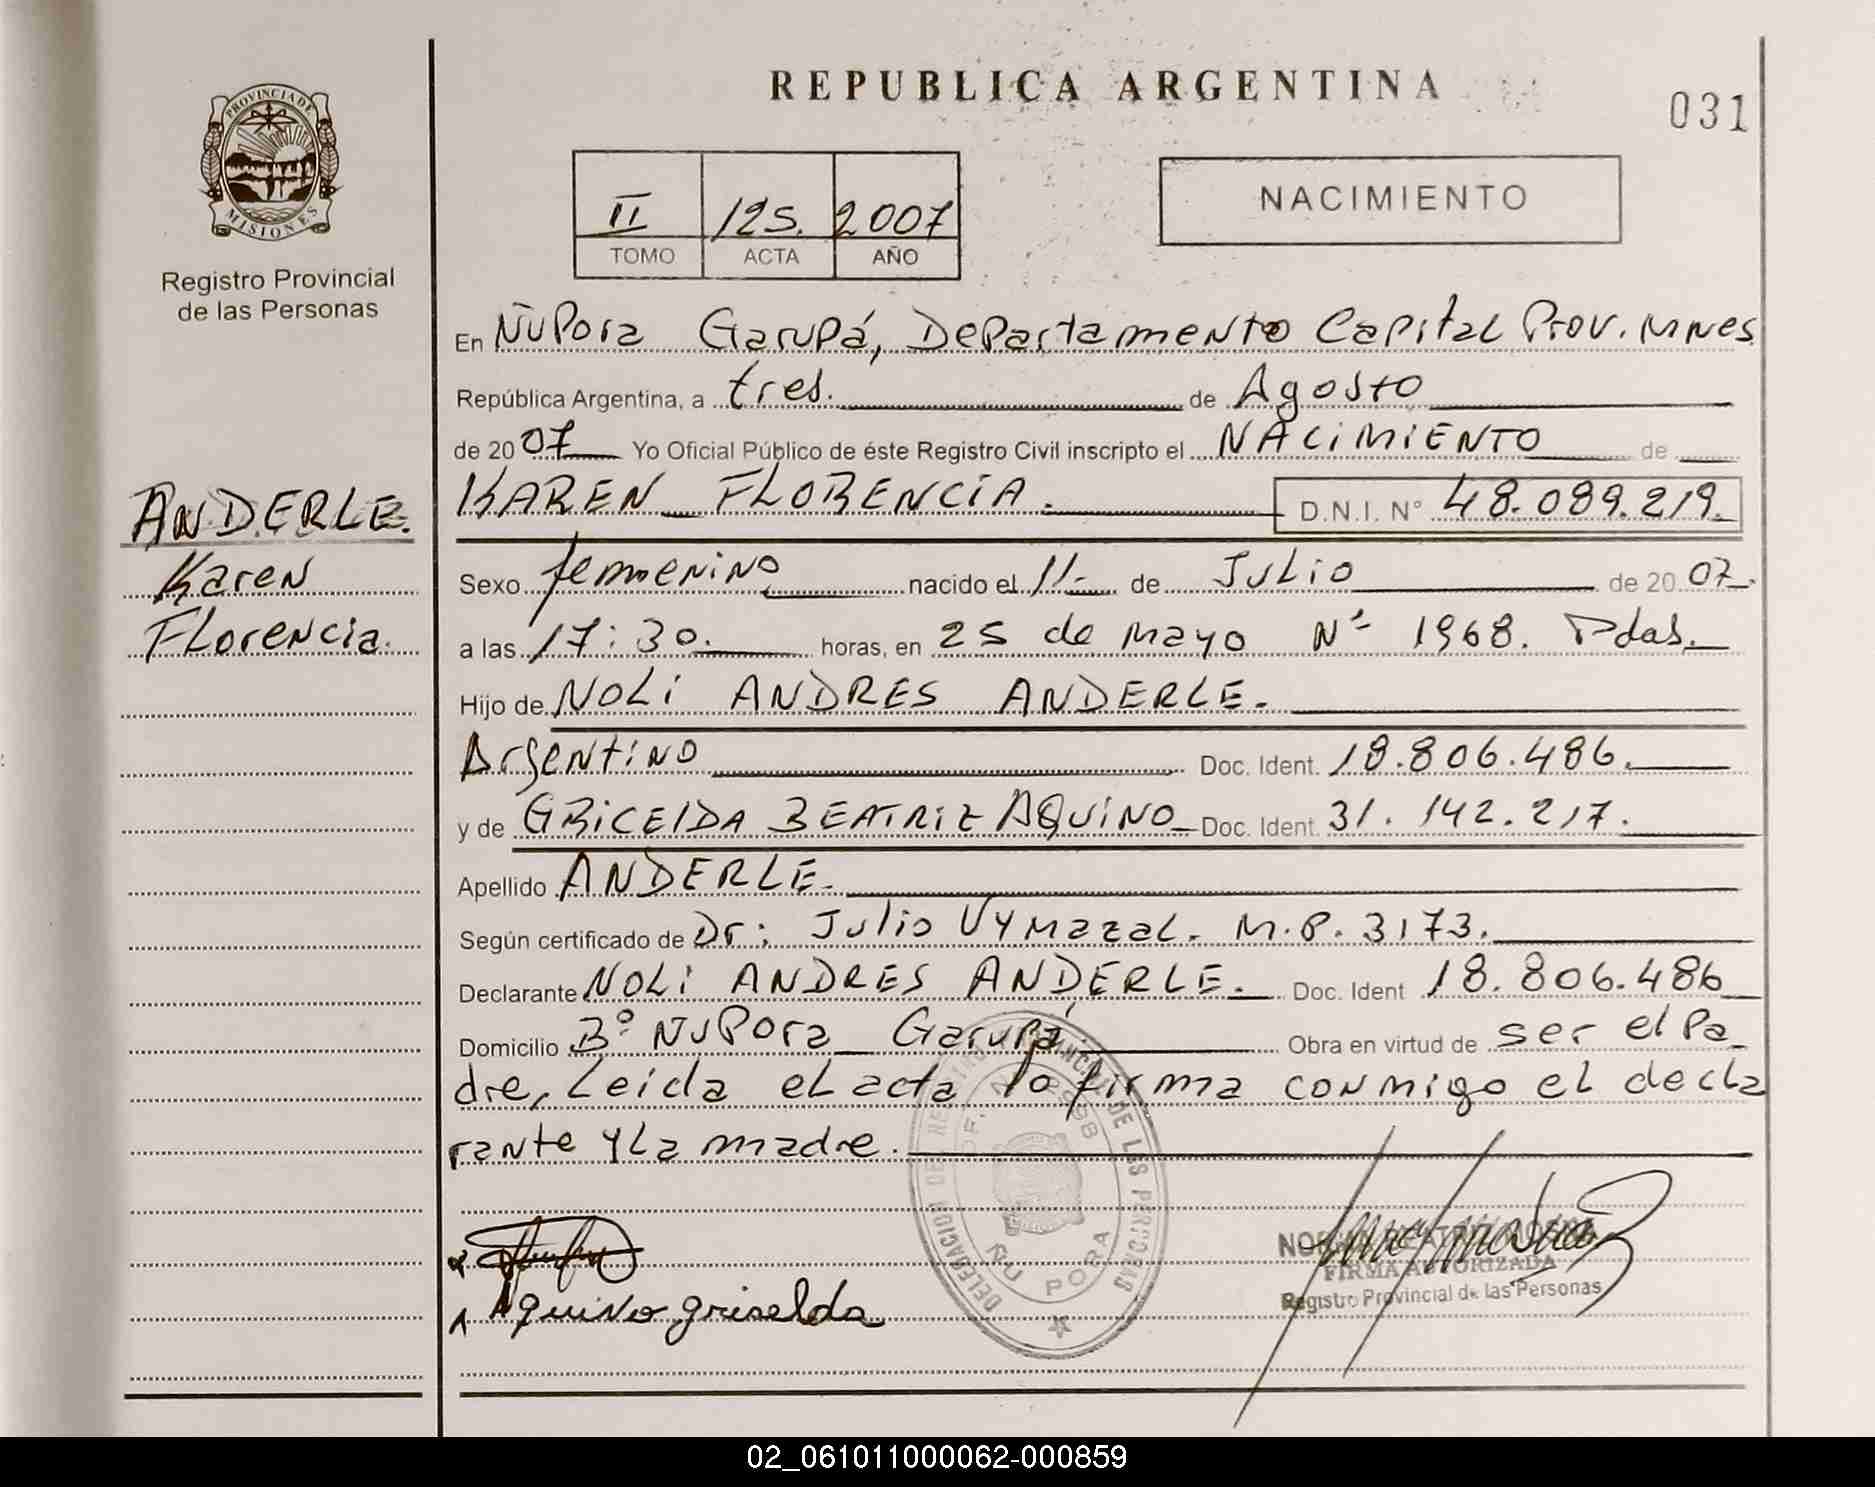 REPUBLICA ARGENTINA
031
PROVINCIA DE
MISIONES
Registro Provincial
de las Personas
II 125. 2007
TOMO ACTA AÑO
NACIMIENTO
En ÑuPora Garupá, Departamento Capital Prov. Mnes
República Argentina, a tres. de Agosto
de 2007 Yo Oficial Público de éste Registro Civil inscripto el NACIMIENTO de
ANDERLE.
Karen
Florencia.
KAREN FLORENCIA. D.N.I. N° 48.089.219.
Sexo femenino nacido el 11 de Julio de 2007.
a las 17:30. horas, en 25 de mayo N° 1968. Pdas.
Hijo de NOLI ANDRES ANDERLE.
Argentino Doc. Ident. 18.806.486.
y de GRICELDA BEATRIZ AQUINO Doc. Ident. 31.142.217.
Apellido ANDERLE.
Según certificado de Dr: Julio Vymazal. M.P. 3173.
Declarante NOLI ANDRES ANDERLE. Doc. Ident 18.806.486
Domicilio B° ÑuPora Garupá. Obra en virtud de ser el Pa
dre, Leida el acta la firma conmigo el decla
rante y La madre.
DELEGACION DEL REGISTRO PROVINCIAL DE LAS PERSONAS
ÑU PORA
Aquino griselda
FIRMA AUTORIZADA
Registro Provincial de las Personas
02_061011000062-000859